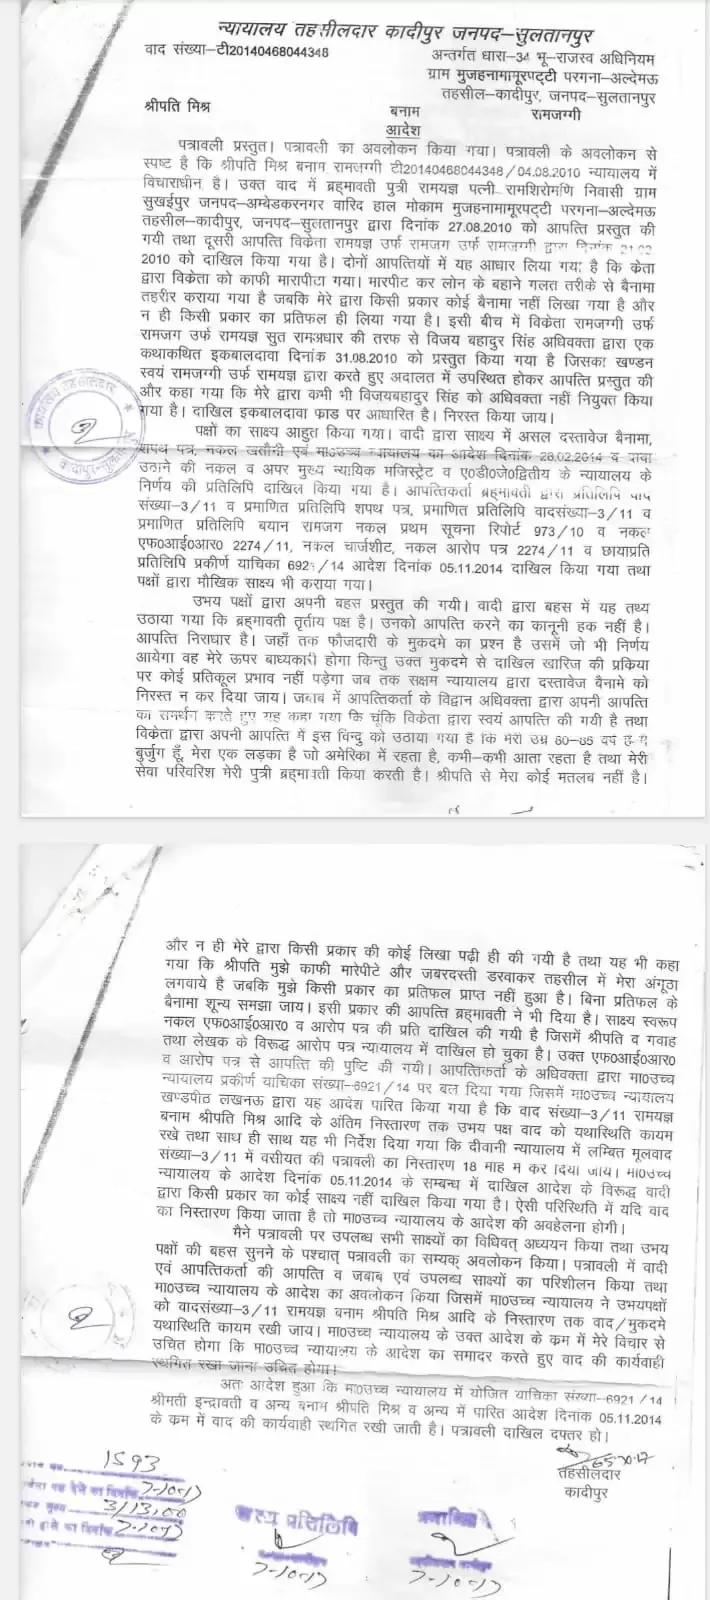 न्यायालय तहसीलदार कादीपुर जनपद–सुलतानपुर
वाद संख्या–टी20140468044348
अन्तर्गत धारा–34 भू–राजस्व अधिनियम
ग्राम मुजहनामामूरपट्टी परगना–अल्देमऊ
तहसील–कादीपुर, जनपद–सुलतानपुर
श्रीपति मिश्र बनाम रामजग्गी
आदेश
पत्रावली प्रस्तुत। पत्रावली का अवलोकन किया गया। पत्रावली के अवलोकन से
स्पष्ट है कि श्रीपति मिश्र बनाम रामजग्गी टी20140468044348/04.08.2010 न्यायालय में
विचाराधीन है। उक्त वाद में ब्रह्मावती पुत्री रामयज्ञ पत्नी रामशिरोमणि निवासी ग्राम
सुखईपुर जनपद–अम्बेडकरनगर वारिद हाल मोकाम मुजहनामामूरपट्टी परगना–अल्देमऊ
तहसील–कादीपुर, जनपद–सुलतानपुर द्वारा दिनांक 27.08.2010 को आपत्ति प्रस्तुत की
गयी तथा दूसरी आपत्ति विकेता रामयज्ञ उर्फ रामजग उर्फ रामजग्गी द्वारा दिनांक
2010 को दाखिल किया गया है। दोनों आपत्तियों में यह आधार लिया गया है कि केता
द्वारा विकेता को काफी मारापीटा गया। मारपीट कर लोन के बहाने गलत तरीके से बैनामा
तहरीर कराया गया है जबकि मेरे द्वारा किसी प्रकार कोई बैनामा नहीं लिखा गया है और
न ही किसी प्रकार का प्रतिफल ही लिया गया है। इसी बीच में विकेता रामजग्गी उर्फ
रामजग उर्फ रामयज्ञ सुत रामअधार की तरफ से विजय बहादुर सिंह अधिवक्ता द्वारा एक
कथाकथित इकबालदावा दिनांक 31.08.2010 को प्रस्तुत किया गया है जिसका खण्डन
स्वयं रामजग्गी उर्फ रामयज्ञ द्वारा करते हुए अदालत में उपस्थित होकर आपत्ति प्रस्तुत की
और कहा गया कि मेरे द्वारा कभी भी विजयबहादुर सिंह को अधिवक्ता नहीं नियुक्त किया
गया है। दाखिल इकबालदावा फ्राड पर आधारित है। निरस्त किया जाय।
पक्षों का साक्ष्य आहुत किया गया। वादी द्वारा साक्ष्य में असल दस्तावेज बैनामा,
शपथ पत्र, नकल खतौनी एवं मा0उच्च न्यायालय का आदेश दिनांक 28.02.2014 व दावा
उठाने की नकल व अपर मुख्य न्यायिक मजिस्ट्रेट व ए0डी0जे0द्वितीय के न्यायालय के
निर्णय की प्रतिलिपि दाखिल किया गया है। आपत्तिकर्ता ब्रह्मावती द्वारा प्रतिलिपि वाद
संख्या–3/11 व प्रमाणित प्रतिलिपि शपथ पत्र, प्रमाणित प्रतिलिपि वादसंख्या–3/11 व
प्रमाणित प्रतिलिपि बयान रामजग नकल प्रथम सूचना रिपोर्ट 973/10 व नकल
एफ0आई0आर0 2274/11, नकल चार्जशीट, नकल आरोप पत्र 2274/11 व छायाप्रति
प्रतिलिपि प्रकीर्ण याचिका 6921/14 आदेश दिनांक 05.11.2014 दाखिल किया गया तथा
पक्षों द्वारा मौखिक साक्ष्य भी कराया गया।
उभय पक्षों द्वारा अपनी बहस प्रस्तुत की गयी। वादी द्वारा बहस में यह तथ्य
उठाया गया कि ब्रह्मावती तृतीय पक्ष है। उनको आपत्ति करने का कानूनी हक नहीं है।
आपत्ति निराधार है। जहाँ तक फौजदारी के मुकदमे का प्रश्न है उसमें जो भी निर्णय
आयेगा वह मेरे ऊपर बाध्यकारी होगा किन्तु उक्त मुकदमे से दाखिल खारिज की प्रकिया
पर कोई प्रतिकूल प्रभाव नहीं पड़ेगा जब तक सक्षम न्यायालय द्वारा दस्तावेज बैनामे को
निरस्त न कर दिया जाय। जबाब में आपत्तिकर्ता के विद्वान अधिवक्ता द्वारा अपनी आपत्ति
का समर्थन करते हुए यह कहा गया कि चूंकि विकेता द्वारा स्वयं आपत्ति की गयी है तथा
विकेता द्वारा अपनी आपत्ति में इस विन्दु को उठाया गया है कि मेरी उम्र 80–85 वर्ष है मैं
बुर्जुग हूँ, मेरा एक लड़का है जो अमेरिका में रहता है, कभी–कभी आता रहता है तथा मेरी
सेवा परिवरिश मेरी पुत्री ब्रह्मावती किया करती है। श्रीपति से मेरा कोई मतलब नहीं है।
और न ही मेरे द्वारा किसी प्रकार की कोई लिखा पढ़ी ही की गयी है तथा यह भी कहा
गया कि श्रीपति मुझे काफी मारेपीटे और जबरदस्ती डरवाकर तहसील में मेरा अंगूठा
लगवाये है जबकि मुझे किसी प्रकार का प्रतिफल प्राप्त नहीं हुआ है। बिना प्रतिफल के
बैनामा शून्य समझा जाय। इसी प्रकार की आपत्ति ब्रह्मावती ने भी दिया है। साक्ष्य स्वरूप
नकल एफ0आई0आर0 व आरोप पत्र की प्रति दाखिल की गयी है जिसमें श्रीपति व गवाह
तथा लेखक के विरूद्ध आरोप पत्र न्यायालय में दाखिल हो चुका है। उक्त एफ0आई0आर0
व आरोप पत्र से आपत्ति की पुष्टि की गयी। आपत्तिकर्ता के अधिवक्ता द्वारा मा0उच्च
न्यायालय प्रकीर्ण याचिका संख्या–6921/14 पर बल दिया गया जिसमें मा0उच्च न्यायालय
खण्डपीठ लखनऊ द्वारा यह आदेश पारित किया गया है कि वाद संख्या–3/11 रामयज्ञ
बनाम श्रीपति मिश्र आदि के अंतिम निस्तारण तक उभय पक्ष वाद को यथास्थिति कायम
रखे तथा साथ ही साथ यह भी निर्देश दिया गया कि दीवानी न्यायालय में लम्बित मूलवाद
संख्या–3/11 में वसीयत की पत्रावली का निस्तारण 18 माह में कर दिया जाय। मा0उच्च
न्यायालय के आदेश दिनांक 05.11.2014 के सम्बन्ध में दाखिल आदेश के विरूद्ध वादी
द्वारा किसी प्रकार का कोई साक्ष्य नहीं दाखिल किया गया है। ऐसी परिरिथति में यदि वाद
का निस्तारण किया जाता है तो मा0उच्च न्यायालय के आदेश की अवहेलना होगी।
मैने पत्रावली पर उपलब्ध सभी साक्ष्यों का विधिवत् अध्ययन किया तथा उभय
पक्षों की बहस सुनने के पश्चात् पत्रावली का सम्यक् अवलोकन किया। पत्रावली में वादी
एवं आपत्तिकर्ता की आपत्ति व जबाब एवं उपलब्ध साक्ष्यों का परिशीलन किया तथा
मा0उच्च न्यायालय के आदेश का अवलोकन किया जिसमें मा0उच्च न्यायालय ने उभयपक्षों
को वादसंख्या–3/11 रामयज्ञ बनाम श्रीपति मिश्र आदि के निस्तारण तक वाद/मुकदमे
यथास्थिति कायम रखी जाय। मा0उच्च न्यायालय के उक्त आदेश के कम में मेरे विचार से
उचित होगा कि मा0उच्च न्यायालय के आदेश का समादर करते हुए वाद की कार्यवाही
स्थगित रखा जाना उचित होगा।
अतः आदेश हुआ कि मा0उच्च न्यायालय में योजित याचिका संख्या–6921/14
श्रीमती इन्द्रावती व अन्य बनाम श्रीपति मिश्र व अन्य में पारित आदेश दिनांक 05.11.2014
के कम में वाद की कार्यवाही स्थगित रखी जाती है। पत्रावली दाखिल दफ्तर हो।
तहसीलदार
कादीपुर
1593
7-10-17
3/13.00
7-10-17
सत्य प्रतिलिपि
7-10-17
7-10-17